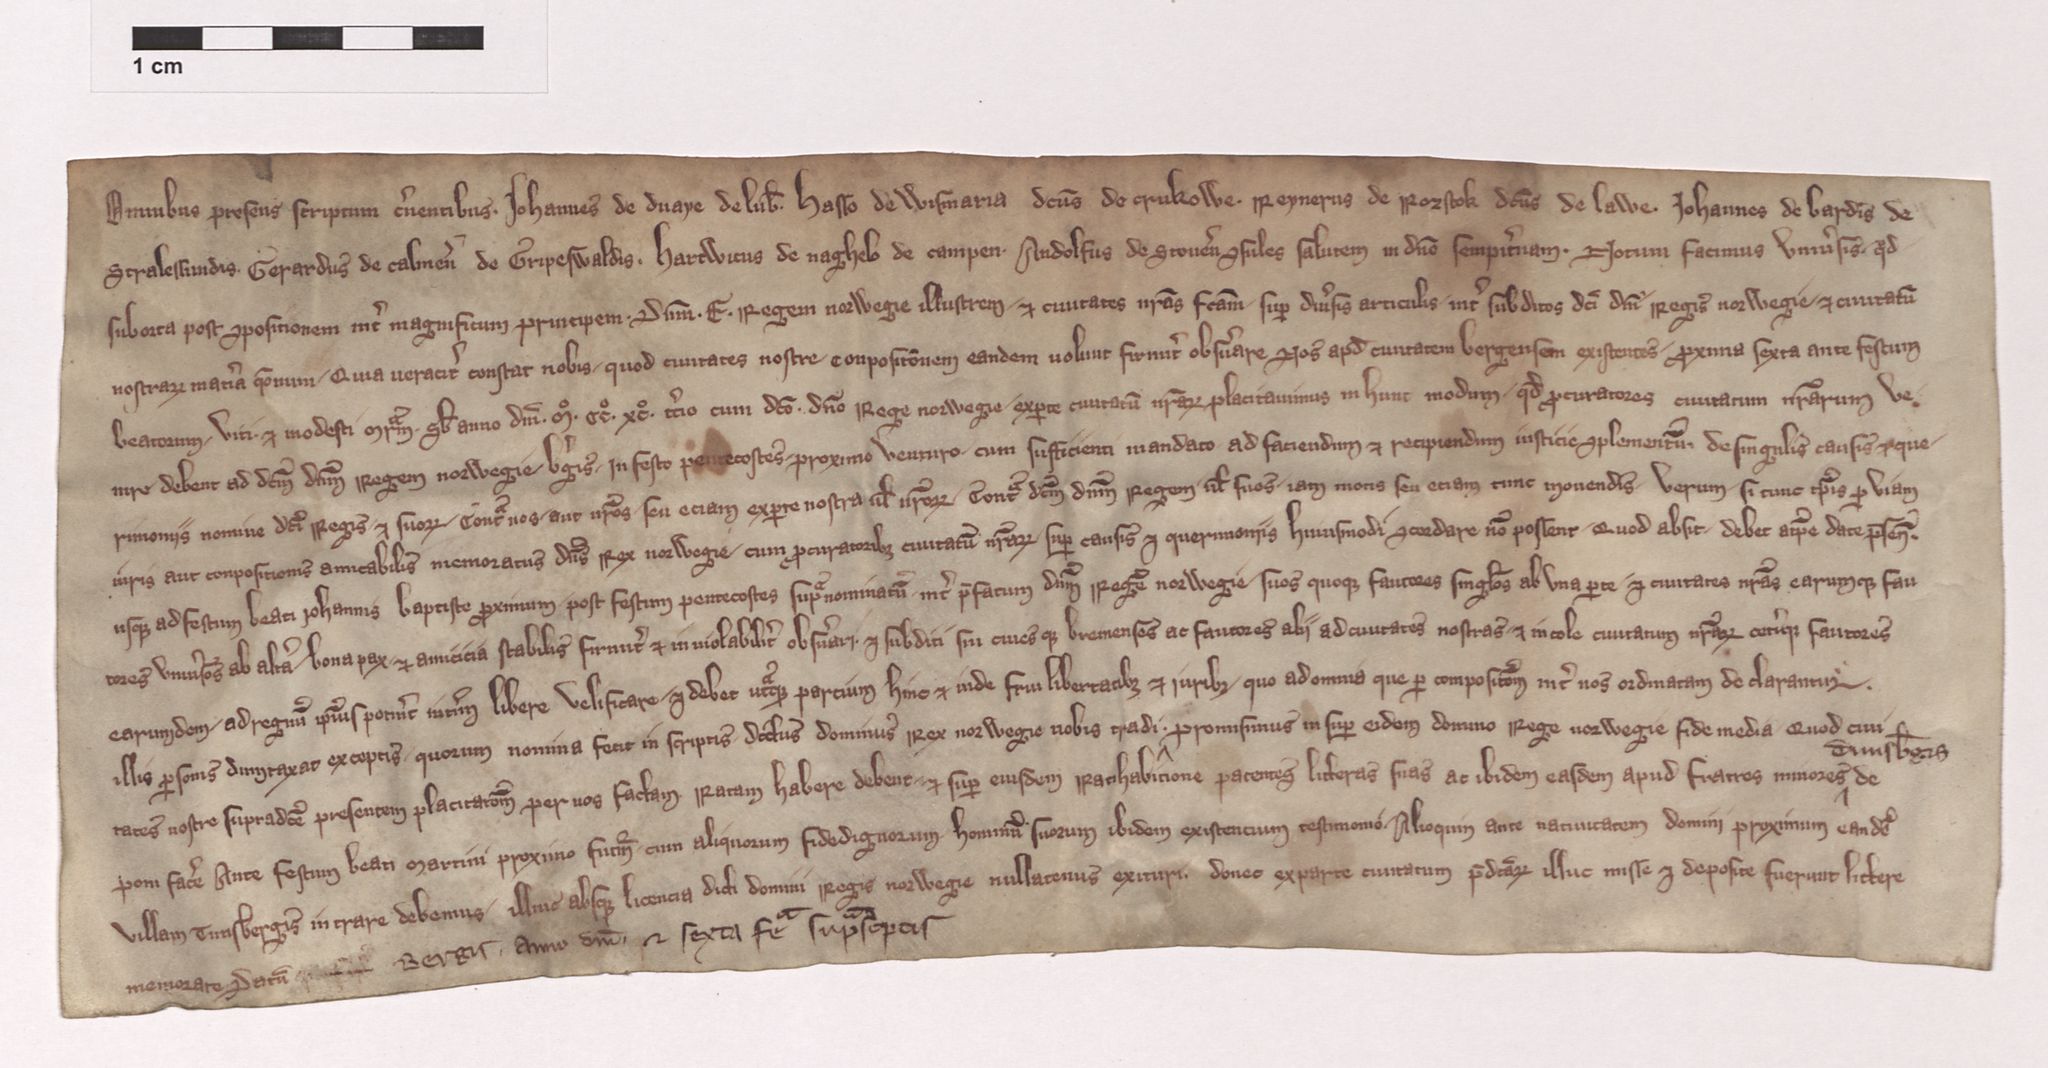 1 cm
Omnibus presens scriptum c̓nentibus. Johannes de duaye de lub̄. Hasso de wismaria dc̄us de crukowe. Reynerus de Rozstok dc̄us de lawe. Johannes de bardis de
Stralessundis. Gerardus de calmen̄ de Gripeswaldis. Hartwicus de naghelo de campen. Andolfus de Stouen̄ ꝯsules salutem in dn̄o sempit̓nam. Notum facimus vniu̓sis. qd̄
suborta post ꝯpositionem int̓ magnificum principem. Dn̄m. E. Regem norwegie illustrem ⁊ ciuitates nr̄as fc̄am. sup diu̓sis articulis int̓ subditos dc̄i dn̄i Regis norwegie ⁊ ciuitatū
nostraꝝ mat̓ia q̄rimonie. Quia ueracit̓ constat nobis. quod ciuitates nostre conposito̅nem eandem uolunt firmit̓ obsu̓are Nos apd̄ ciuitatem bergensem existentes. proxima sexta ante festum
beatorum. viti. ⁊ modesti mr̄m. sb̄ anno dn̄i. mº. ccº. xcº. t̓cio cum dc̄o. dn̄o Rege norwegie. ex parte ciuitatū nr̄aꝝ placitauimus in hunc modum. qd̄ procuratores ciuitatum nr̄arum ve-
nire debent ad dc̄m dn̄m Regem norwegie b̓gis. in festo pentecostes. proximo venturo. cum sufficienti mandato ad faciendum ⁊ recipiendum iusticie ꝯplementū. de singulis causis ⁊ que-
rimoniis nomine dc̄i Regis ⁊ suoꝝ. Contͣ nos. aut nr̄os. seu eciam ex parte nostra ul̄ nr̄oꝝ. Contͣ dc̄m dn̄m Regem ul̄ suos. iam motis seu etiam tunc mouendis. Verum. si tunc tp̄ris per viam
iuris aut conpositionis amicabilis memoratus dn̄s Rex norwegie. cum procuratoribꝫ ciuitatū nr̄aꝝ. sup causis ⁊ querimoniis huiusmodi ꝯcordare nō possent. Quod absit. debet a tp̄re date p̄sen̄.
usqꝫ ad festum beati Johannis baptiste proximum. post festum pentecostes supͣnominatū. int̓ p̄fatum dn̄m Regē norwegie. suos quoqꝫ fautores singl̄os ab vna parte. ⁊ ciuitates nr̄as earumqꝫ fau
tores vniu̓sos ab alt̓a. bona pax. ⁊ amicicia stabilis firmit̓ ⁊ inuiolabilit̓ obsu̓ari. ⁊ subditi sui ciues qꝫ bremenses ac fautores alij ad ciuitates nostras. ⁊ incole ciuitatum nr̄aꝝ cet̓iqꝫ fautores
earumdem. ad regnū ipsius potu̓int int̓im libere velificare. ⁊ debet ut̓qꝫ partium hinc ⁊ inde frui libertatibꝫ ⁊ iuribꝫ. quo ad omnia que per compositōm int̓ nos ordinatam declarantur.
illis personis dumtaxat exceptis. quorum nomina fecit in scriptis. dc̄us dominus Rex norwegie nobis tradi. promisimus insuper eidem domino Rege norwegie fide media. Quod ciui
tates nostre supradc̄e presentem placitatōm per nos factam Ratam habere debent. ⁊ super eiusdem Ratihabicione patentes litteras suas ac ibidem easdem apud fratres minores de Tunsb̄gis
poni fac̓e Ante festum beati Martini proximo futm̄. cum aliquorum fidedignorum. hominū. suorum ibidem existencium testimonio. Alioquin ante natiuitatem domini proximum eandē
villam Tunsbergis intrare debemus. illinc absqꝫ licencia dicti domini Regis norwegie nullatenus exituri. donec ex parte ciuitatum p̄dc̄aꝝ illuc misse ⁊ deposite fuerunt littere
memorate. Datū Bergis. anno dn̄i. ⁊ sexta feͣ supͣscptis